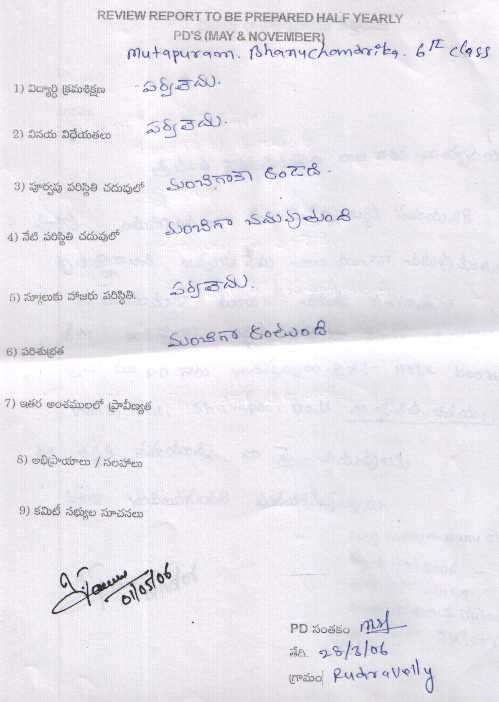 REVIEW REPORT TO BE PREPARED HALF YEARLY
PD'S (MAY & NOVEMBER)
Mutapuram. Bhanuchandrika. 6th class
1) విద్యార్థి క్రమశిక్షణ - పర్వాలేదు.
2) వినయ విధేయతలు పర్వాలేదు.
3) పూర్వపు పరిస్థితి చదువులో మంచిగానే ఉండెడి.
4) నేటి పరిస్థితి చదువులో మంచిగా చదువుతుంది
5) స్కూలుకు హాజరు పరిస్థితి. పర్వాలేదు.
6) పరిశుభ్రత మంచిగా ఉంటుంది
7) ఇతర అంశములలో ప్రావీణ్యత
8) అభిప్రాయాలు / సలహాలు
9) కమిటీ సభ్యుల సూచనలు
01/05/06
PD సంతకం
తేది. 28/3/06
గ్రామం Rudravelly